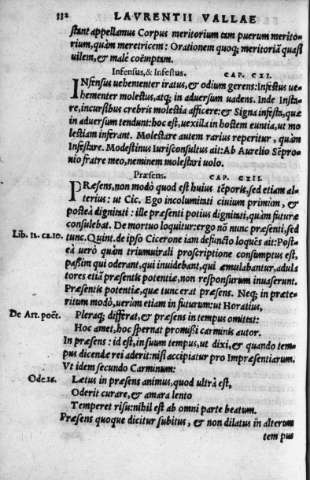 112 LAVRENTII VALLAE
stant appellamus Corpus meritorium tam puerum merito-
rium, quàm meretricem: Orationem quoq; meritoriā quasi
uilem, & malè coëmptam.
Infensus, & Infestus. CAP. CXI.
INfensus uehementer iratus, & odium gerens: Infestus ue-
hementer molestus, atq; in aduersum uadens. Inde Insta-
re, incursibus crebris molestia afficere: & Signa infesta, quæ
in aduersum tendunt: hoc est, uexilla in hostem euntia, ut mo
lestiam inferant. Molestare autem rarius reperitur, quàm
Infestare. Modestinus Iurisconsultus ait: Ab Aurelio Sēpro-
nio fratre meo, neminem molestari uolo.
Præsens. CAP. CXII.
PRæsens, non modò quod est huius tēporis, sed etiam al-
terius: ut Cic. Ego incolumitati ciuium primùm, &
posteà dignitati: ille præsenti potius dignitati, quàm futuræ
consulebat. De mortuo loquitur: ergo nō nunc præsenti, sed
Lib. 12. ca. 10. tunc. Quint. de ipso Cicerone iam defuncto loquēs ait: Post-
eà uerò quàm triumuirali proscriptione consumptus est,
passim qui oderant, qui inuidebant, qui æmulabantur, adula
tores etiā præsentis potentiæ, non responsurum inuaserunt.
Præsentis potentiæ, quæ tunc erat præsens. Neq; in præte-
ritum modò, uerùm etiam in futurum: ut Horatius,
De Art. poët. Pleraq; differat, & præsens in tempus omittat:
Hoc amet, hoc spernat promissi carminis autor.
In præsens: id est, in suum tempus, ut dixi, & quando tem-
pus dicendæ rei aderit: nisi accipiatur pro Impræsentiarum.
Vt idem secundo Carminum:
Ode 16. Lætus in præsens animus, quod ultrà est,
Oderit curare, & amara lento
Temperet risu: nihil est ab omni parte beatum.
Præsens quoque dicitur subitus, & non dilatus in alterum
tem pus